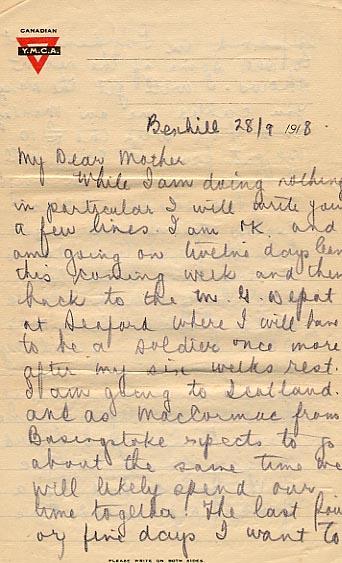 CANADIAN
Y.M.C.A.
Bexhill 28/9 1918.
My Dear Mother
While I am doing nothing
in particular I will write you
a few lines. I am OK. and
am going on twelve days leave
this coming week and then
back to the M. G. Depot
at Seaford where I will have
to be a soldier once more
after my six weeks rest.
I am going to Scotland.
and as MacCormac from
Basingstoke expects to go
about the same time we
will likely spend our
time together. The last four
or five days I want to
PLEASE WRITE ON BOTH SIDES.